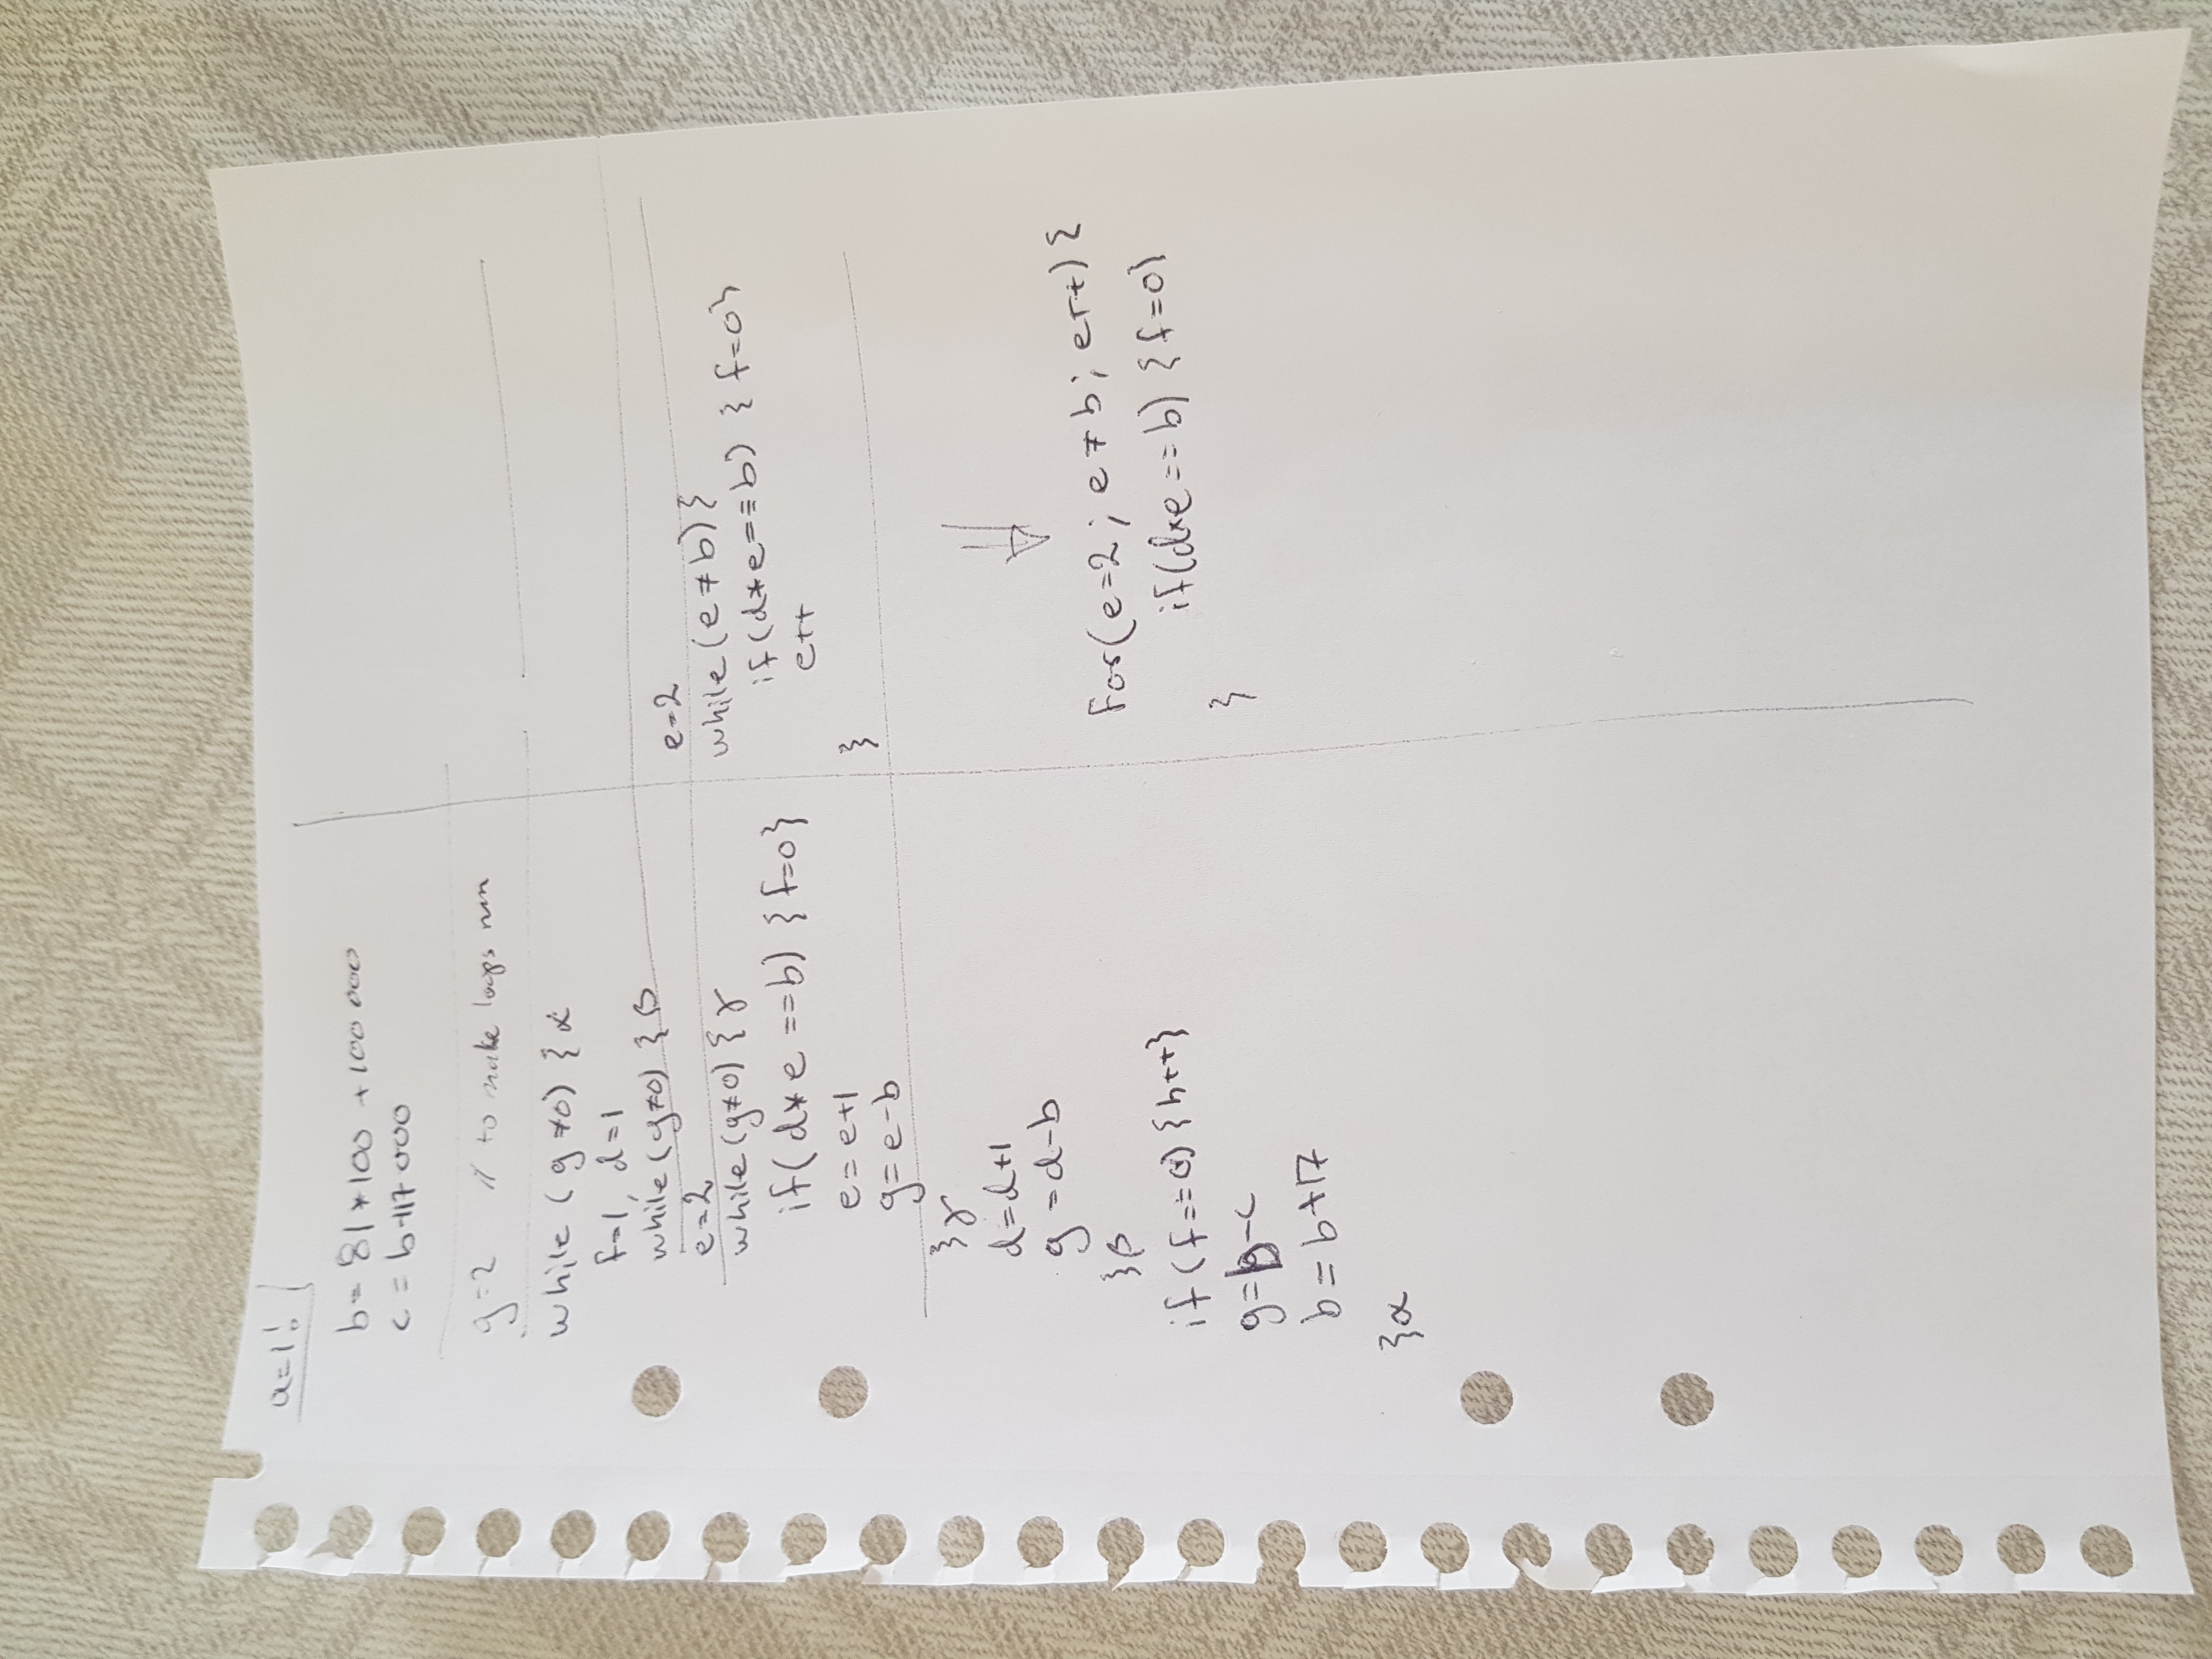 a=1!
b= 81*100 + 100 000
c = b+17 000
g=2 // to make loops run
while (g≠0) { α
f=1, d=1
while (g≠0) { β
e=2
while (g≠0) { γ
if( d*e ==b) {f=0}
e= e+1
g= e-b
} γ
d=d+1
g =d-b
} β
if (f==0) {b++}
g=b-c
b= b+17
} α
e=2
while (e≠b) {
if(d*e==b) { f=0}
e++
}
For(e=2; e≠b; e++) {
if(d*e==b) {f=0}
}